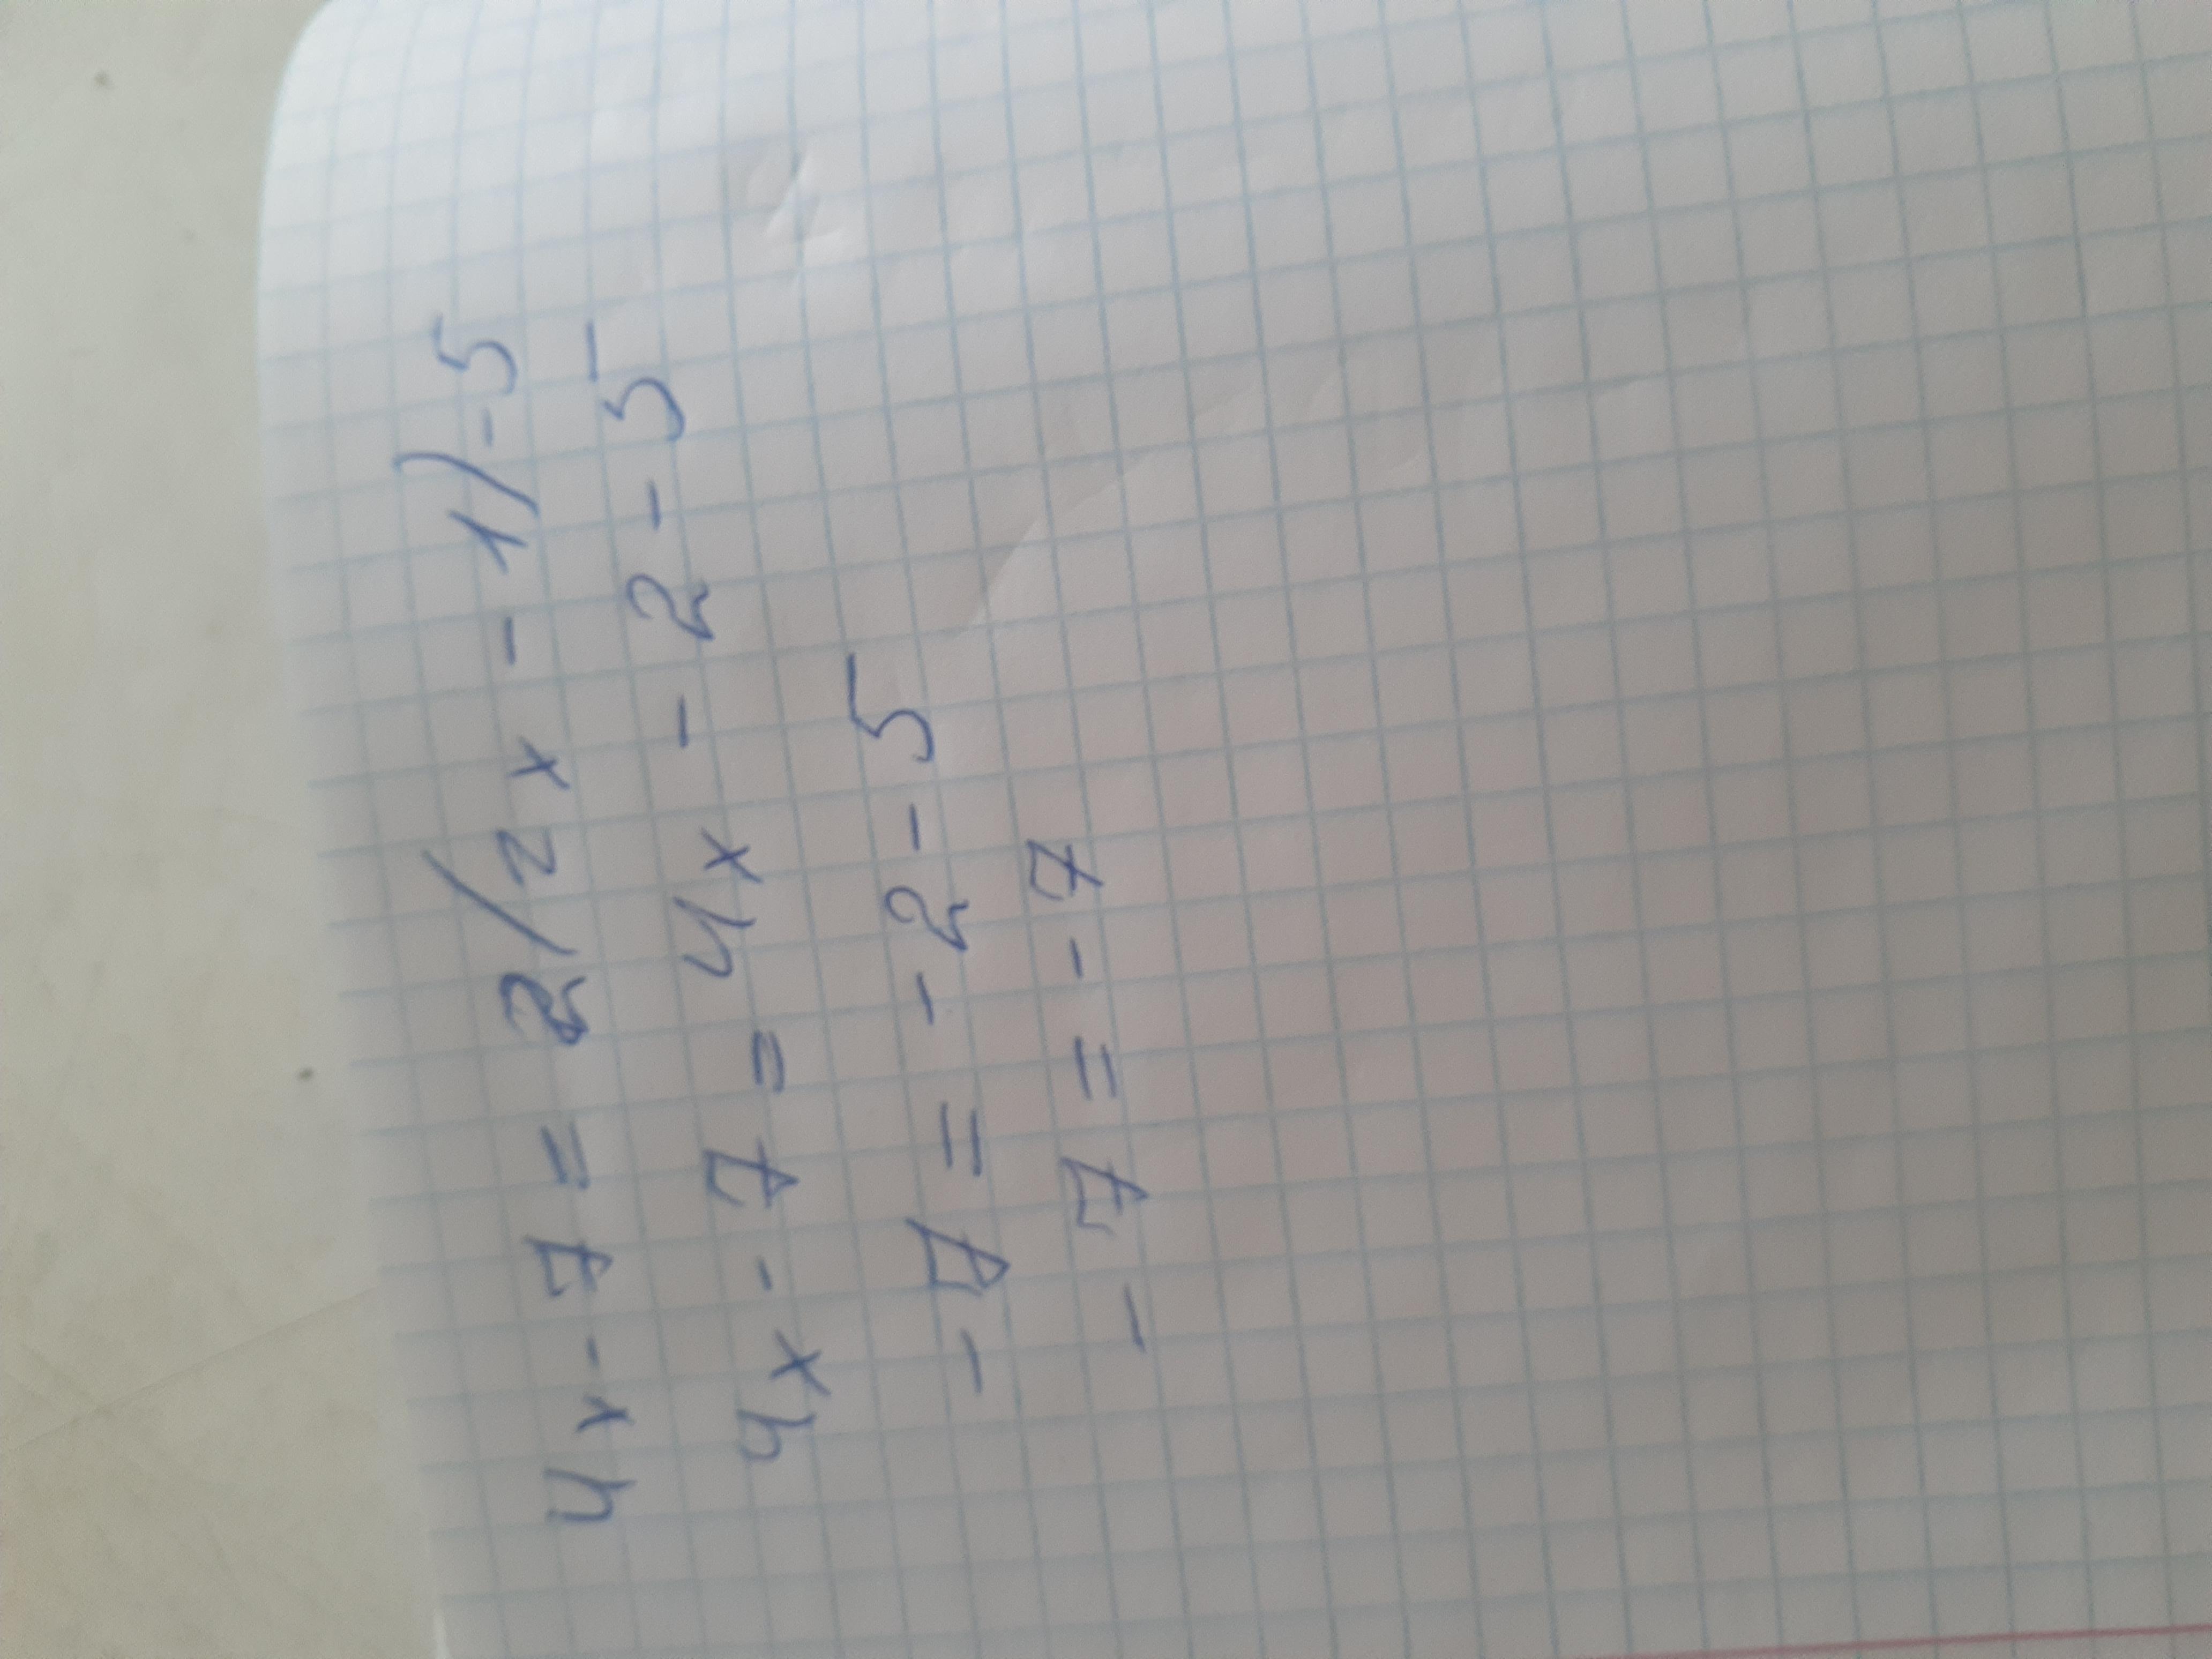 4x - 7 = 2(2x - 1) - 5
4x - 7 = 4x - 2 - 5
- 7 = - 2 - 5
- 7 = - 7